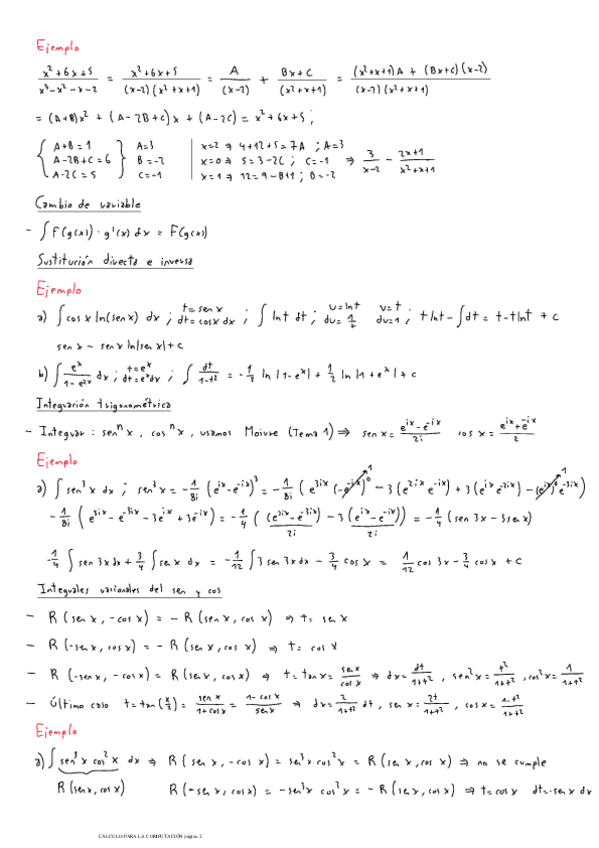 Ejemplo
(x²+6x+5)/(x³-x²-x-2) = (x²+6x+5)/((x-2)(x²+x+1)) = A/(x-2) + (Bx+C)/(x²+x+1) = ((x²+x+1)A + (Bx+C)(x-2))/((x-2)(x²+x+1))
= (A+B)x² + (A-2B+C)x + (A-2C) = x²+6x+5;
A+B=1 A=3 x=2 ⇒ 4+12+5=7A ; A=3
A-2B+C=6 B=-2 x=0 ⇒ 5=3-2C ; C=-1 ⇒ 3/(x-2) - (2x+1)/(x²+x+1)
A-2C=5 C=-1 x=1 ⇒ 12=9-B+1 ; B=-2
Cambio de variable
- ∫ F(g(x)) · g'(x) dx = F(g(x))
Sustitución directa e inversa
Ejemplo
a) ∫ cos x ln(sen x) dx ; t=sen x dt=cosx dx ; ∫ lnt dt ; u=lnt v=t du=1/t dv=1 ; t lnt - ∫dt = t - t lnt + c
sen x - sen x ln|sen x| + c
b) ∫ eˣ/(1-e²ˣ) dx ; t=eˣ dt=eˣdx ; ∫ dt/(1-t²) = -1/2 ln |1-eˣ| + 1/2 ln |1+eˣ| + c
Integración trigonométrica
- Integrar : senⁿx , cosⁿx , usamos Moivre (Tema 1) ⇒ sen x = (e^(ix)-e^(-ix))/2i cos x = (e^(ix)+e^(-ix))/2
Ejemplo
a) ∫ sen³x dx ; sen³x = -1/8i (e^(ix)-e^(-ix))³ = -1/8i (e^(3ix)(-e^(-ix))⁰ - 3(e^(2ix) e^(-ix)) + 3(e^(ix) e^(-2ix)) - (e^(ix))⁰ e^(-3ix))
-1/8i (e^(3ix) - e^(-3ix) - 3e^(ix) + 3e^(-ix)) = -1/4 ((e^(3ix)-e^(-3ix))/2i - 3(e^(ix)-e^(-ix))/2i) = -1/4 (sen 3x - 3sen x)
-1/4 ∫ sen 3x dx + 3/4 ∫ sen x dx = -1/12 ∫ 3 sen 3x dx - 3/4 cos x = 1/12 cos 3x - 3/4 cos x + c
Integrales racionales del sen y cos
- R (sen x, -cos x) = - R (sen x, cos x) ⇒ t = sen x
- R (-sen x, cos x) = - R (sen x, cos x) ⇒ t = cos x
- R (-sen x, -cos x) = R (sen x, cos x) ⇒ t = tan x = sen x/cos x ⇒ dx = dt/(1+t²) , sen²x = t²/(1+t²) , cos²x = 1/(1+t²)
- Último caso t = tan(x/2) = sen x/(1+cos x) = (1-cos x)/sen x ⇒ dx = 2/(1+t²) dt , sen x = 2t/(1+t²) , cos x = (1-t²)/(1+t²)
Ejemplo
a) ∫ sen³x cos²x dx ⇒ R (sen x, -cos x) = sen³x cos²x = R (sen x, cos x) ⇒ no se cumple
R (sen x, cos x) R (-sen x, cos x) = -sen³x cos²x = -R (sen x, cos x) ⇒ t=cos x dt=-sen x dx
CÁLCULO PARA LA COMPUTACIÓN página 2